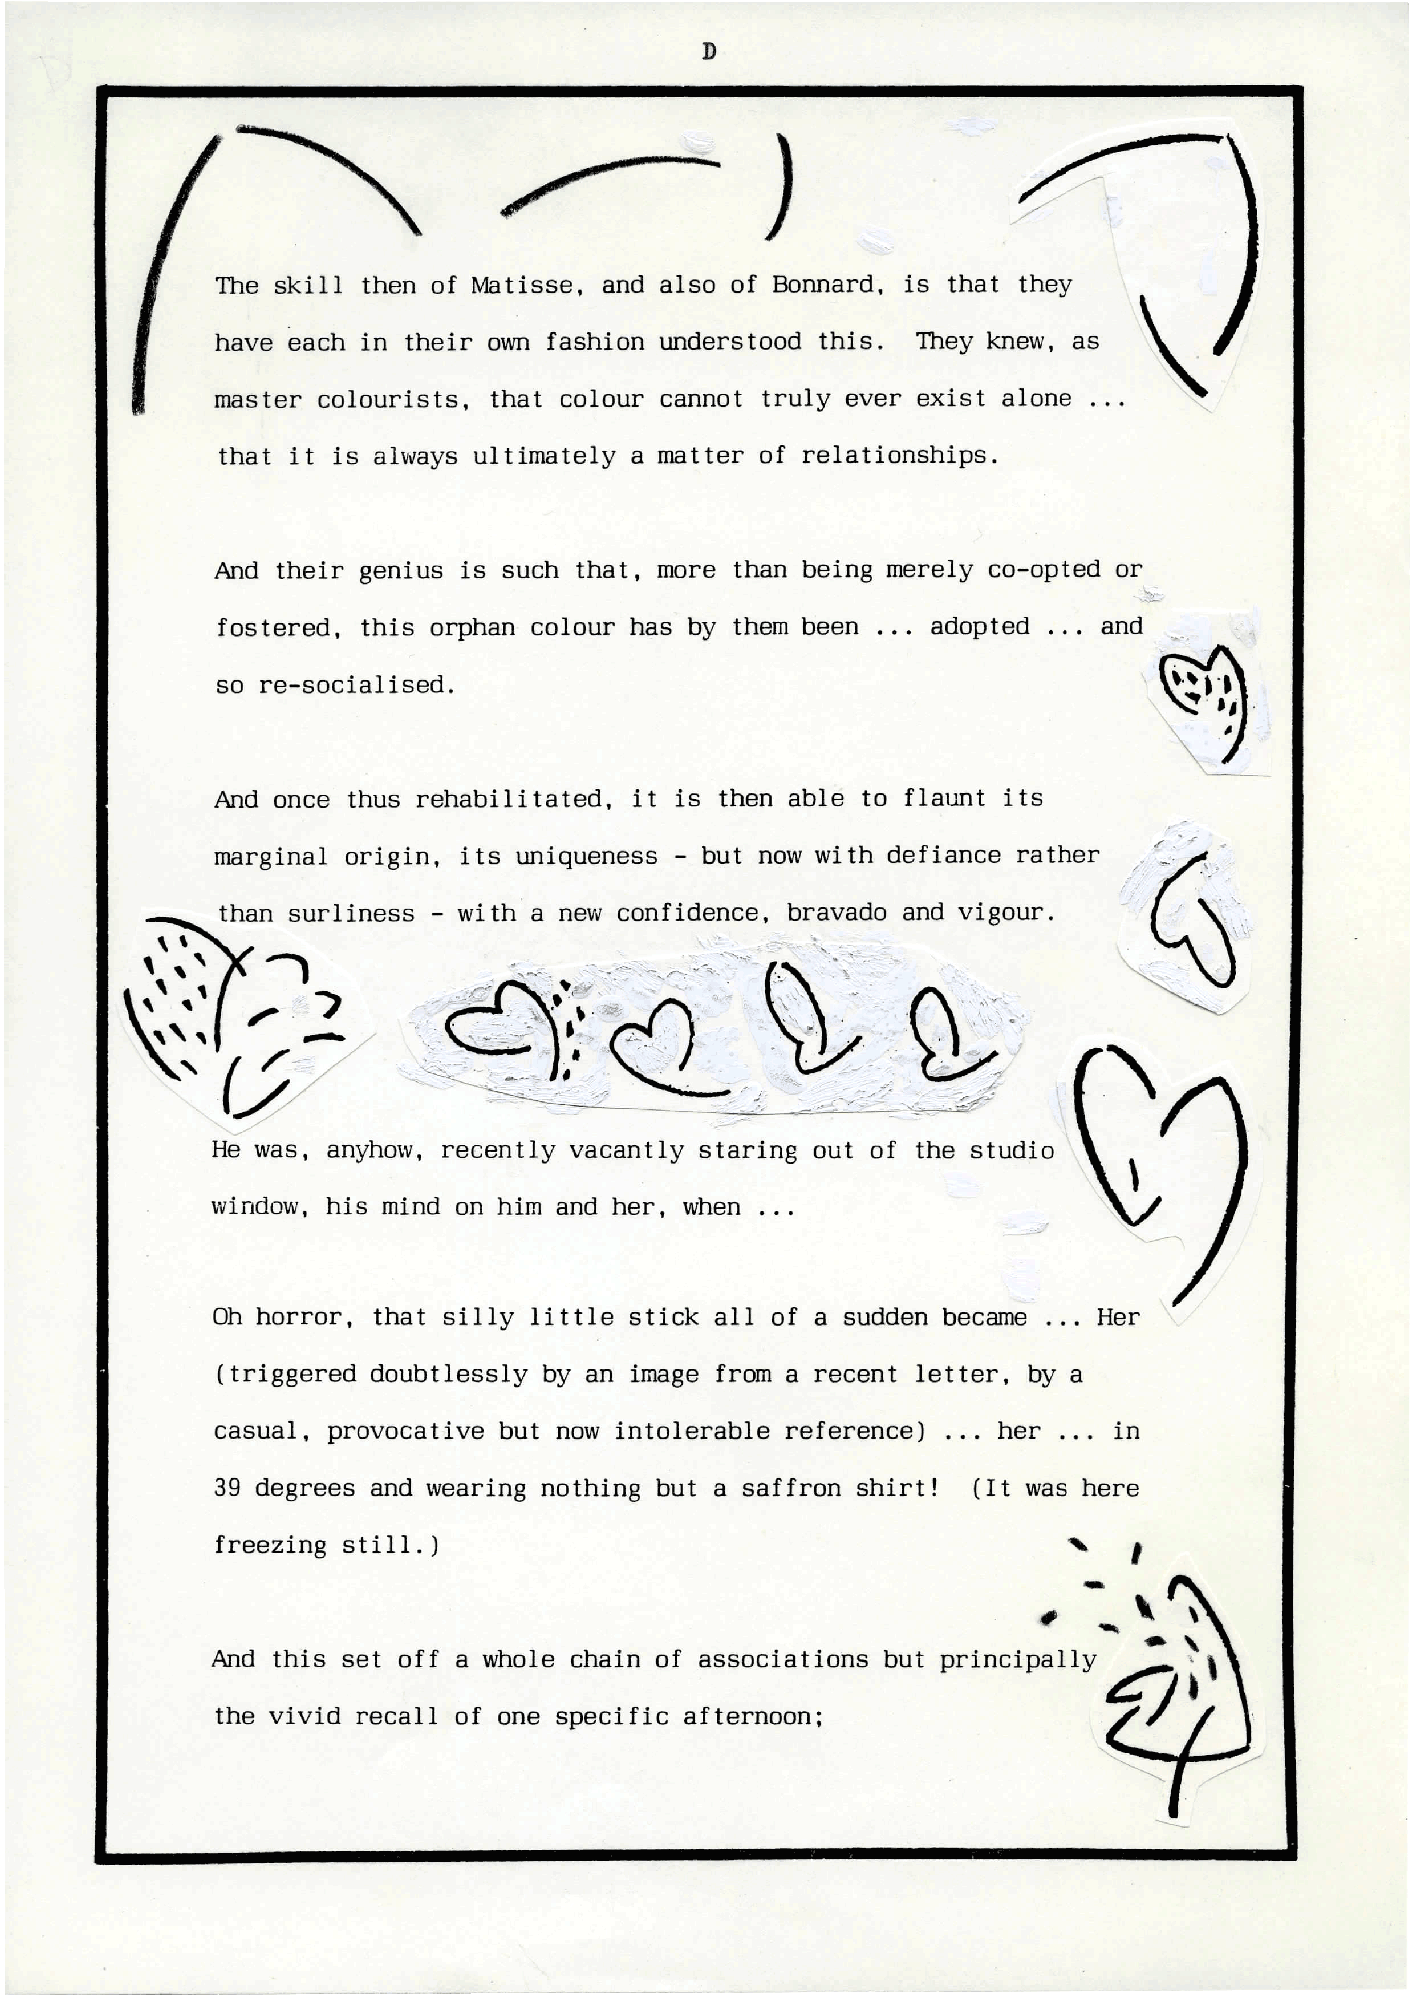 D
The skill then of Matisse, and also of Bonnard, is that they
have each in their own fashion understood this.  They knew, as
master colourists, that colour cannot truly ever exist alone ...
that it is always ultimately a matter of relationships.
And their genius is such that, more than being merely co-opted or
fostered, this orphan colour has by them been ... adopted ... and
so re-socialised.
And once thus rehabilitated, it is then able to flaunt its
marginal origin, its uniqueness - but now with defiance rather
than surliness - with a new confidence, bravado and vigour.
He was, anyhow, recently vacantly staring out of the studio
window, his mind on him and her, when ...
Oh horror, that silly little stick all of a sudden became ... Her
(triggered doubtlessly by an image from a recent letter, by a
casual, provocative but now intolerable reference) ... her ... in
39 degrees and wearing nothing but a saffron shirt!  (It was here
freezing still.)
And this set off a whole chain of associations but principally
the vivid recall of one specific afternoon;